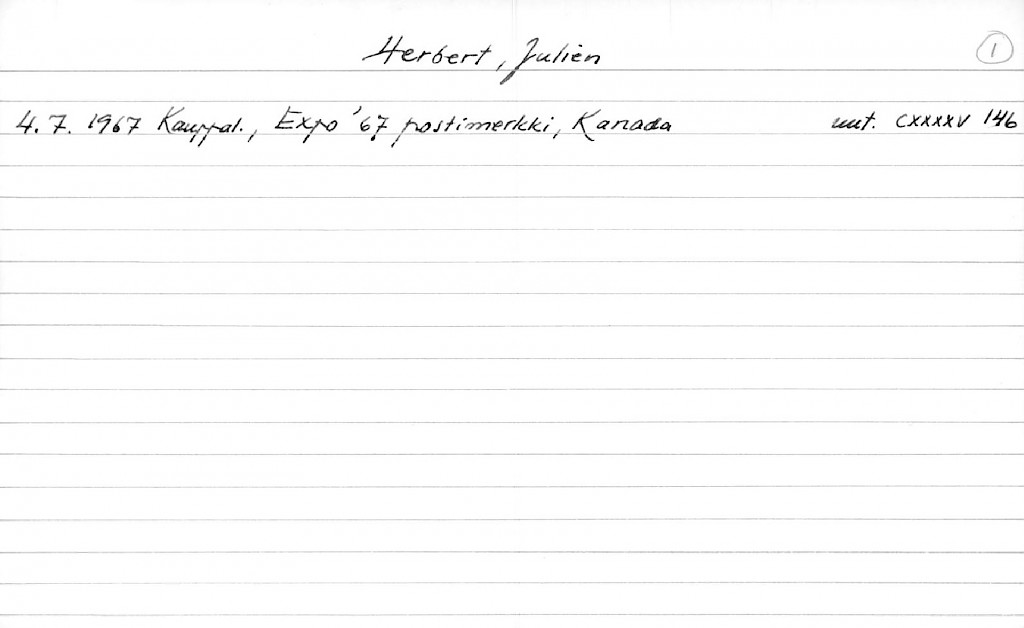 Herbert, Julien 1
4.7. 1967 Kauppal., Expo '67 postimerkki, Kanada uut. CXXXXV 146